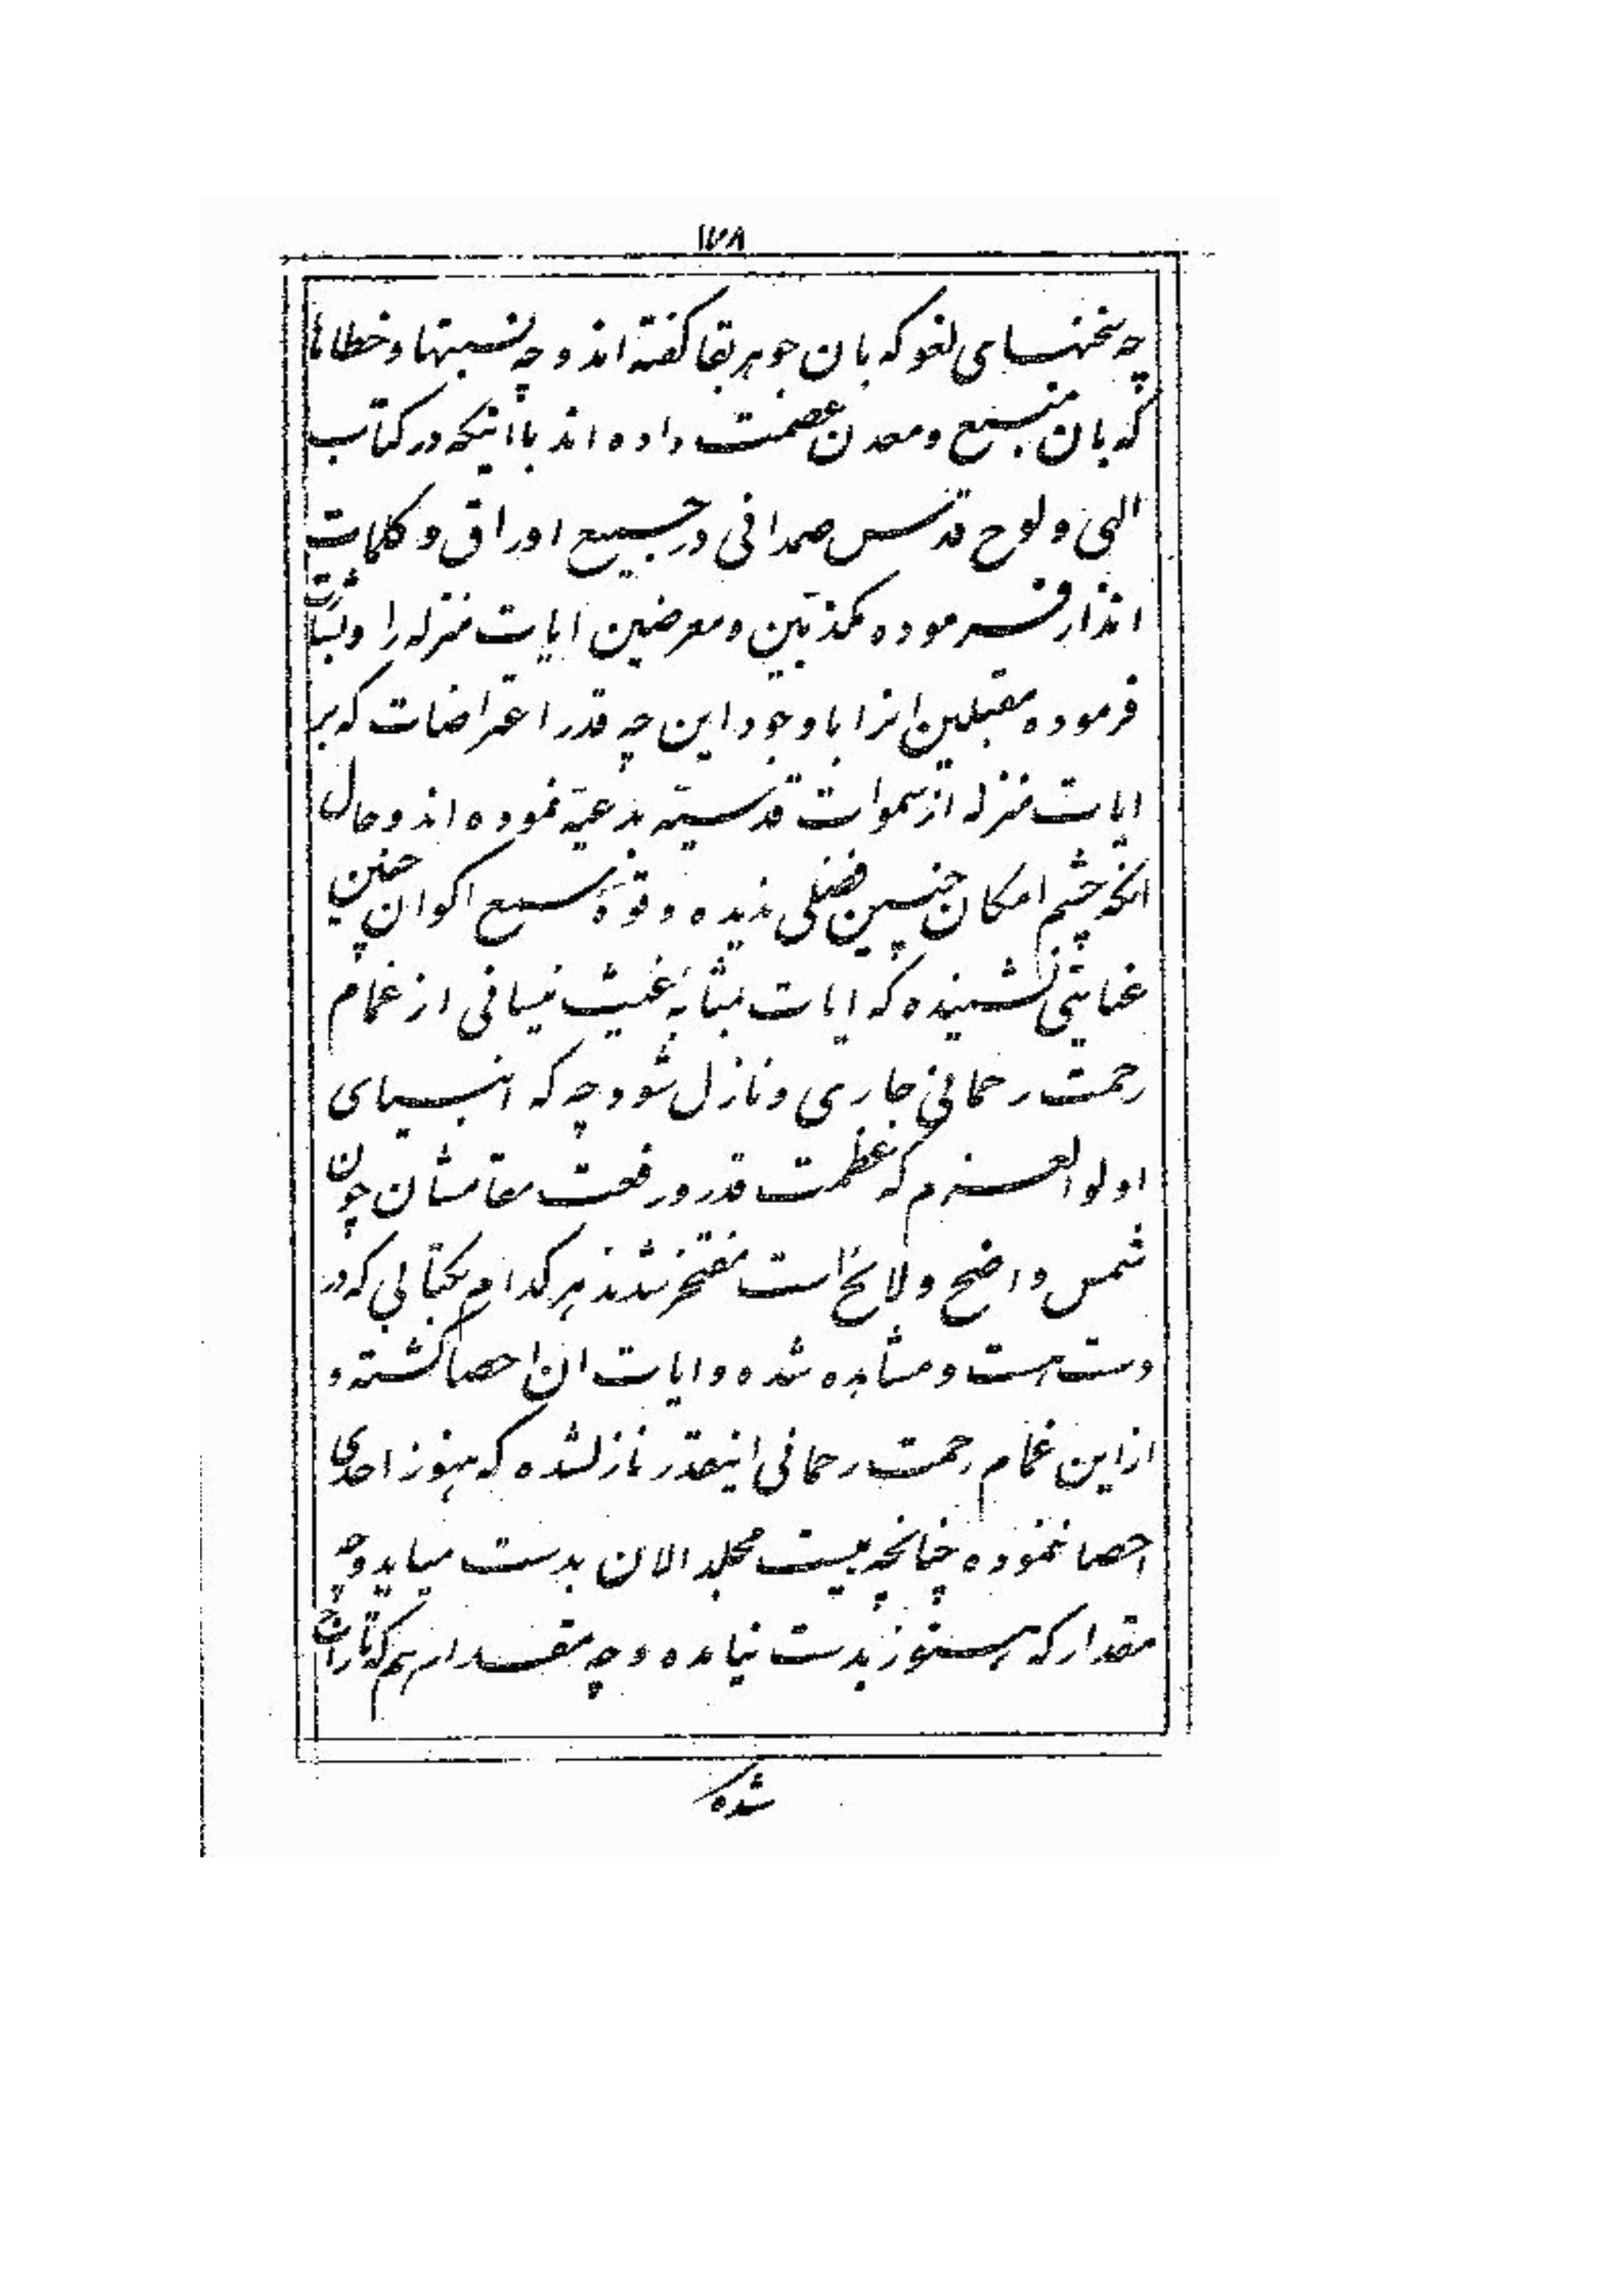 ۱۷۸
چه سخنهای لغو که بان جوهر بقا گفته اند و چه نسبتها و خطاها
که بان منبع و معدن عصمت داده اند با اینکه در کتاب
الهی و لوح قدس صمدانی در جمیع اوراق و کلمات
انذار فرموده مکذبین و معرضین ایات منزله را و بشارت
فرموده مقبلین انرا با وجود این چه قدر اعتراضات که بر
ایات منزله از سموات قدسیه بدعیه نموده اند و حال
انکه چشم امکان چنین فضلی ندیده و قوهٔ سمع اکوان چنین
عنایتی نشنیده که ایات بمثابه غیث نیسانی از غمام
رحمت رحمانی جاری و نازل شود چه که انبیای
اولوا العزم که عظمت قدر و رفعت مقامشان چون
شمس واضح و لائح است مفتخر شدند هر کدام بکتابی که در
دست هست و مشاهده شده و ایات ان احصا گشته و
از این غمام رحمت رحمانی اینقدر نازلشده که هنوز احدی
احصا ننموده چنانچه بیست مجلد الان بدست میاید و چه
مقدار که هنوز بدست نیامده و چه مقدار هم که تاراج
شده